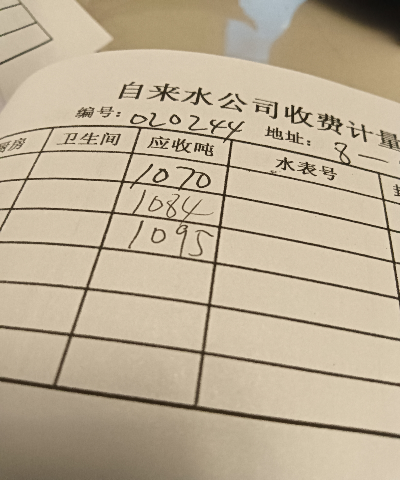 自来水公司收费计量
编号: 020244 地址: 8—
厨房 卫生间 应收吨 水表号
1070
1084
1095